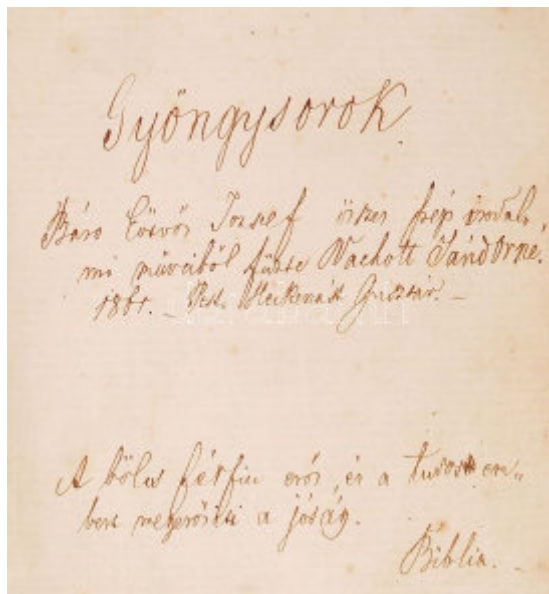 Gyöngysorok
Báro Eötvös József összes szép irodal-
mi müveiből fűzte Vachott Sándorné.
186. – Pest. Heckenast Gusztáv. –
A bölcs férfiu erős, és a tudos em-
bert megerősiti a jóság.
Biblia. –